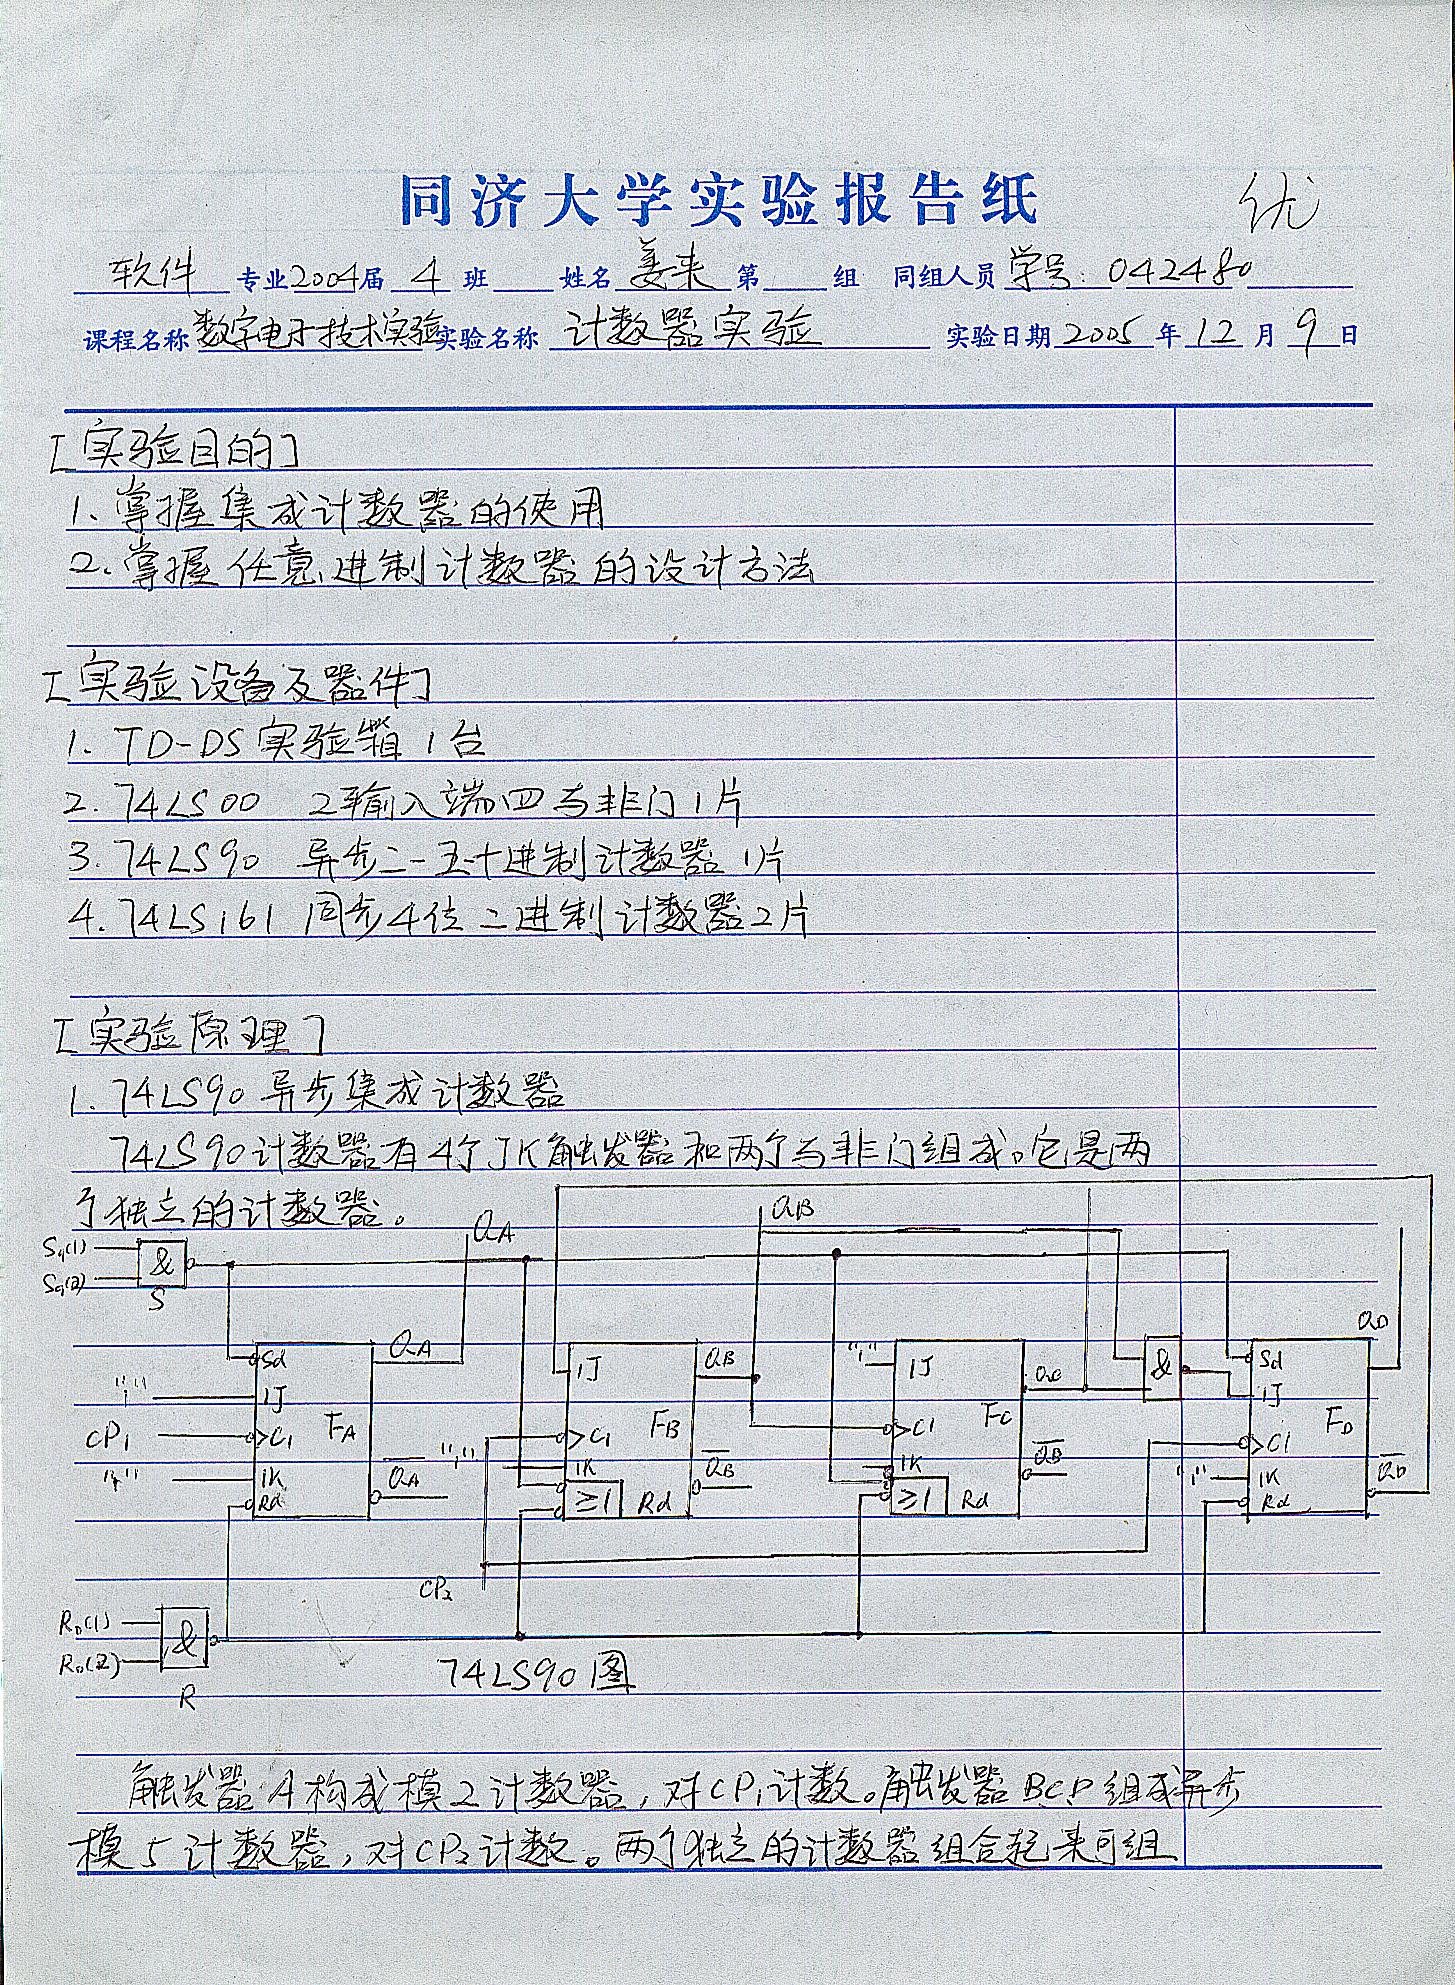 同济大学实验报告纸
优
软件 专业 2004届 4 班 姓名 姜来 第 组 同组人员 学号: 042480
课程名称 数字电子技术实验 实验名称 计数器实验 实验日期 2005 年 12 月 9 日
[实验目的]
1. 掌握集成计数器的使用
2. 掌握任意进制计数器的设计方法
[实验设备及器件]
1. TD-DS 实验箱 1台
2. 74LS00 2输入端四与非门 1片
3. 74LS90 异步二-五-十进制计数器 1片
4. 74LS161 同步4位二进制计数器2片
[实验原理]
1. 74LS90 异步集成计数器
74LS90计数器有4个JK触发器和两个与非门组成。它是两
个独立的计数器。
QA QB
S9(1) & S9(2) S
Sd QA "1" 1J FA CP1 C1 "1" 1K Rd QA
1J QB C1 FB "1" 1K QB ≥1 Rd
"1" 1J QC C1 FC 1K QB ≥1 Rd
&
QD Sd 1J FD C1 "1" 1K QD Rd
CP2
R0(1) & R0(2) R
74LS90图
触发器A构成模2计数器，对CP1计数。触发器BCP组成异步
模5计数器，对CP2计数。两个独立的计数器组合起来可组